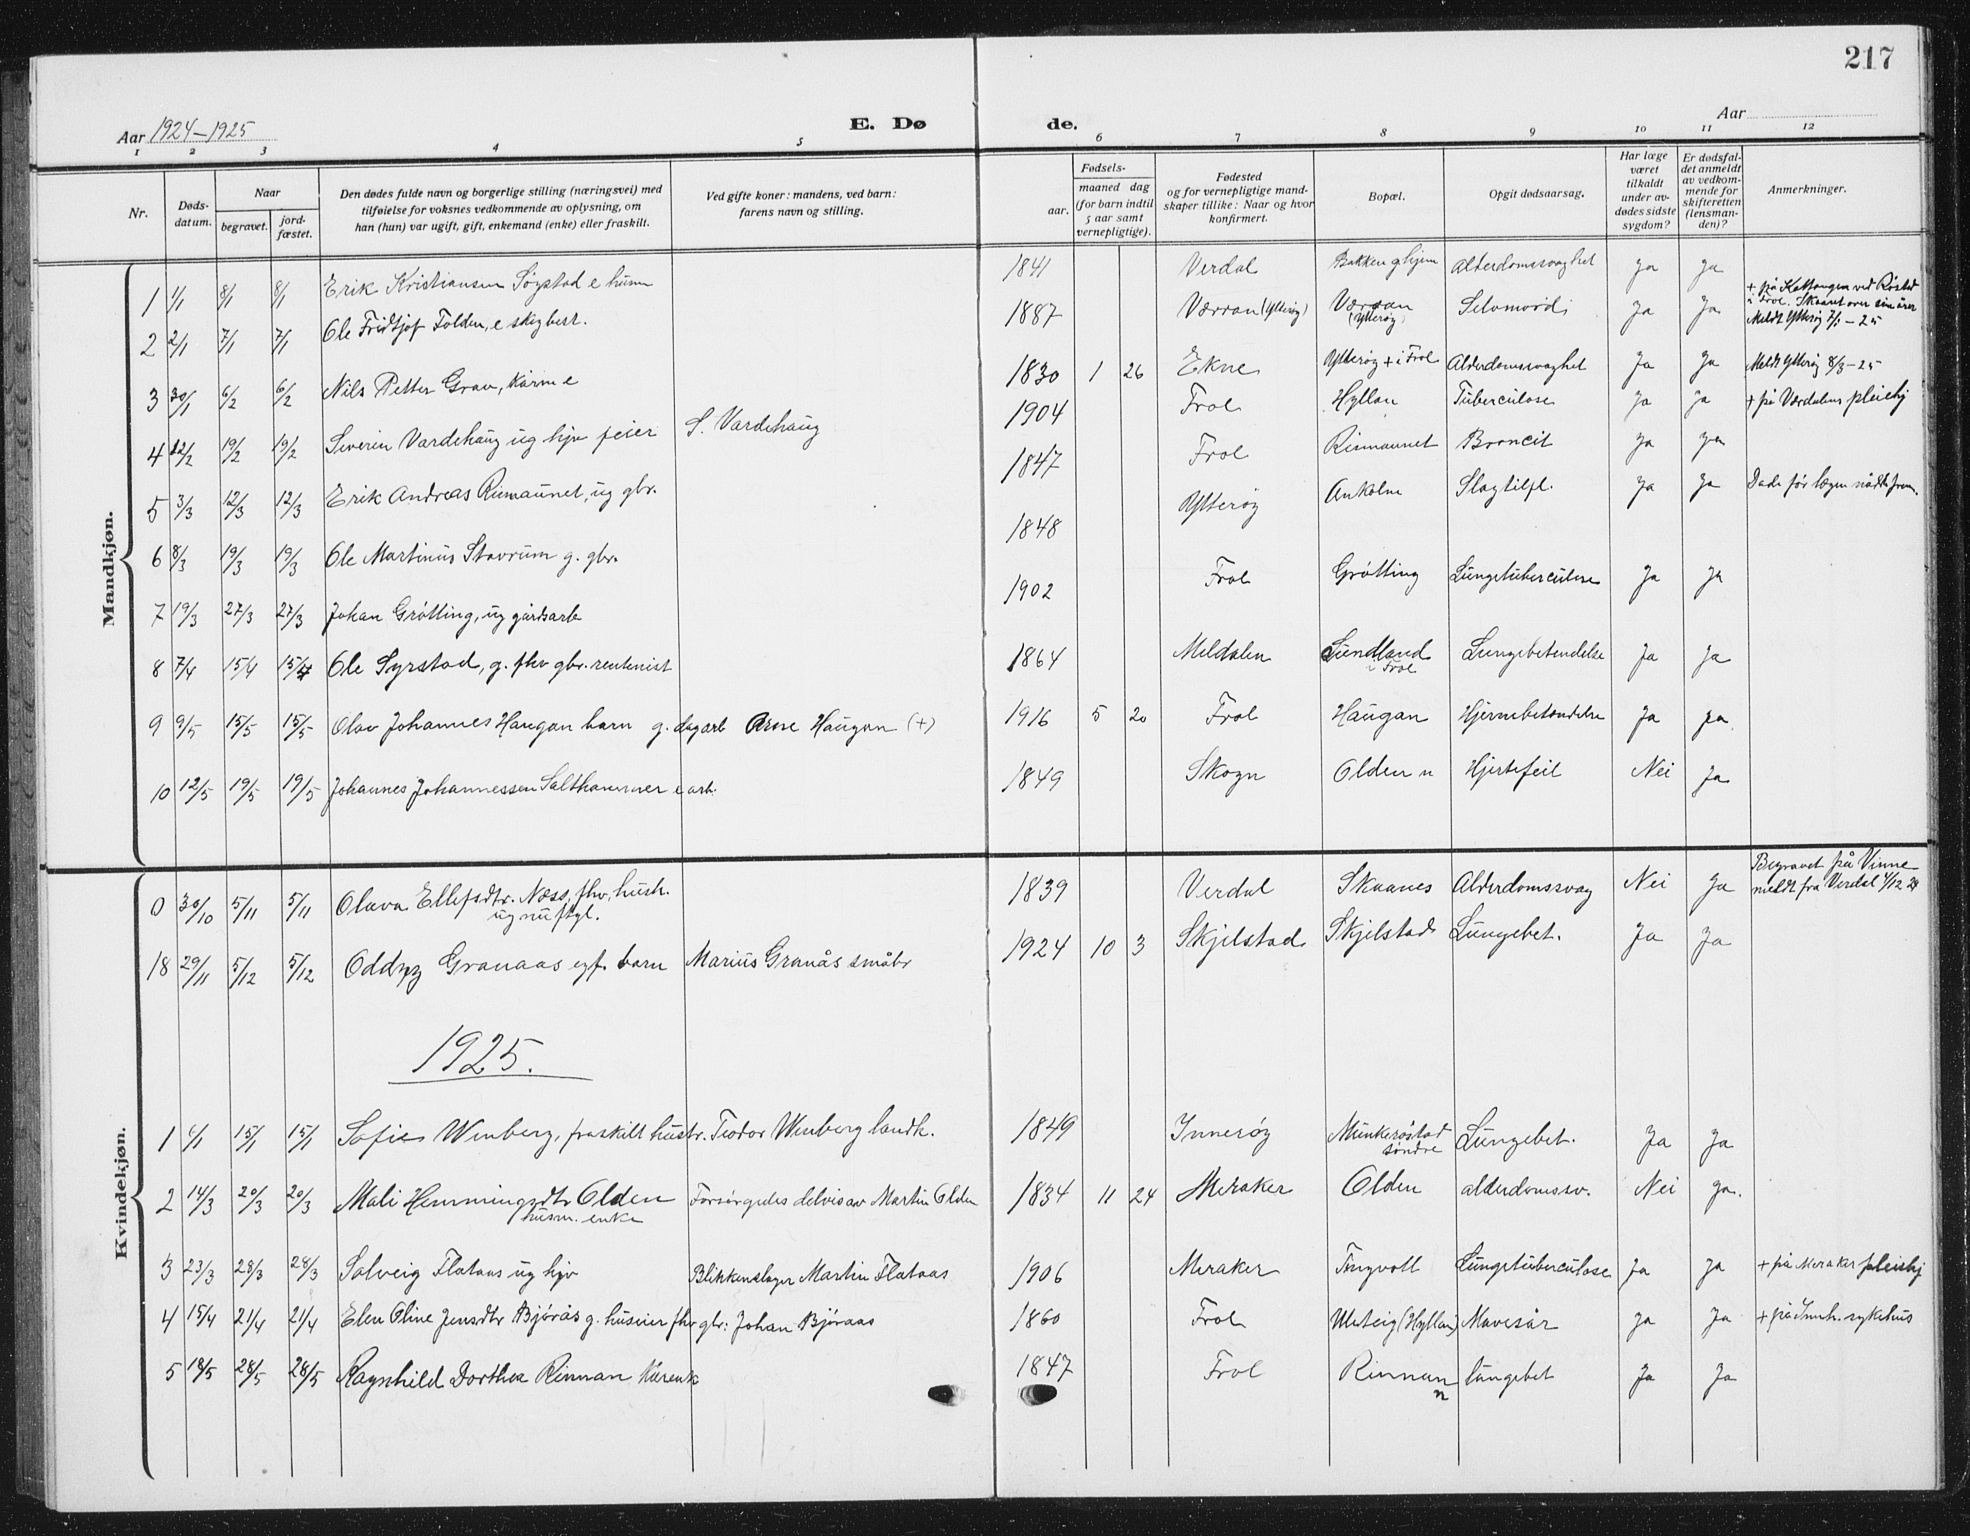 217
Aar 1924-1925
E. Dø
de.
Aar
1 2 3 4 5 6 7 8 9 10 11 12
Nr.
Døds-
datum.
Naar
begravet.
jord-
fæstet.
Den dødes fulde navn og borgerlige stilling (næringsvei) med
tilføielse for voksnes vedkommende av oplysning, om
han (hun) var ugift, gift, enkemand (enke) eller fraskilt.
Ved gifte koner: mandens, ved barn:
farens navn og stilling.
Fødsels-
aar.
maaned dag
(for barn indtil
5 aar samt
vernepligtige).
Fødested
og for vernepligtige mand-
skaper tillike: Naar og hvor
konfirmert.
Bopæl.
Opgit dødsaarsag.
Har læge
været
tilkaldt
under av-
dødes sidste
sygdom?
Er dødsfal-
det anmeldt
av vedkom-
mende for
skifteretten
(lensman-
den)?
Anmerkninger.
Mandkjøn.
1 1/1 8/1 8/1 Erik Kristiansen Søgstad e husm 1841 Verdal Bakken Alderdomssvaghet Ja Ja
2 2/1 7/1 7/1 Ole Fridtjof Folden, e skogbest. 1887 Værran (Ytterøy) Værran (Ytterøy) Selvmord Ja Ja
+ på Kattangen ved Røstad
i Frol. Skaaret over sin årer
Meldt Ytterøy 7/1-25
3 30/1 6/2 6/2 Nils Petter Grav, kårm e 1830 1 26 Ekne Ytterøy + i Frol Alderdomssvaghet Ja Ja Meldt Ytterøy 8/3-25
4 12/2 19/2 19/2 Severin Vardehaug ug hjv feier S. Vardehaug 1904 Frol Hyllan Tuberculose Ja Ja + på Værdalens pleiehj
5 3/3 12/3 12/3 Erik Andreas Rinnaunet, ug gbr. 1847 Frol Rinnaunet Broncit Ja Ja
6 8/3 19/3 19/3 Ole Martinus Stavrum g. gbr. 1848 Ytterøy Ankolm Slagtilf. Ja Ja Døde før lægen nådde frem.
7 19/3 27/3 27/3 Johan Grøtting, ug gårdsarb 1902 Frol Grøtting Lungetuberculose Ja Ja
8 7/4 15/4 15/4 Ole Syrstad, g. fhv gbr. rentenist 1864 Meldalen Sundland i Frol Lungebetendelse Ja Ja
9 9/5 15/5 15/5 Olav Johannes Haugan barn g. dagarb Arne Haugan (+) 1916 5 20 Frol Haugan Hjernebetendelse Ja Ja
10 12/5 19/5 19/5 Johannes Johannessen Salthammer e arb. 1849 Skogn Olden n Hjertefeil Nei Ja
Kvindekjøn.
0 30/10 5/11 5/11 Olava Ellefsdtr. Næss, fhv. hush. 1839 Verdal Skaanes Alderdomssvag Nei Ja
ug nu ftgl.
Begravet på Vinne
meldt fra Verdal 4/12 24
18 29/11 5/12 5/12 Oddny Granaas egf. barn Marius Granås småbr 1924 10 3 Skjelstad Skjelstad Lungebet. Ja Ja
1925.
1 6/1 15/1 15/1 Sofie Wenberg, fraskilt hustr. Teodor Wenberg landh. 1849 Inderøy Munkerøstad søndre Lungebet. Ja Ja
2 14/3 20/3 20/3 Mali Hemmingsdtr Olden Forsørgedes delvis av Martin Olden 1834 11 24 Meraker Olden alderdomssv. Nei Ja.
husm. enke
3 23/3 28/3 28/3 Solveig Flataas ug hjv Blikkenslager Martin Flataas 1906 Meraker Tingvoll Lungetuberculose Ja Ja + på Meraker pleiehj
4 15/4 21/4 21/4 Elen Oline Jensdtr Bjørås g. husmor fhv gbr: Johan Bjøraas 1860 Frol Uleteig (Hyllan) Mavesår Ja Ja + på Innh. sykehus
5 18/5 28/5 28/5 Ragnhild Dorthea Rinnan kårenk 1847 Frol Rinnan n lungebet Ja Ja